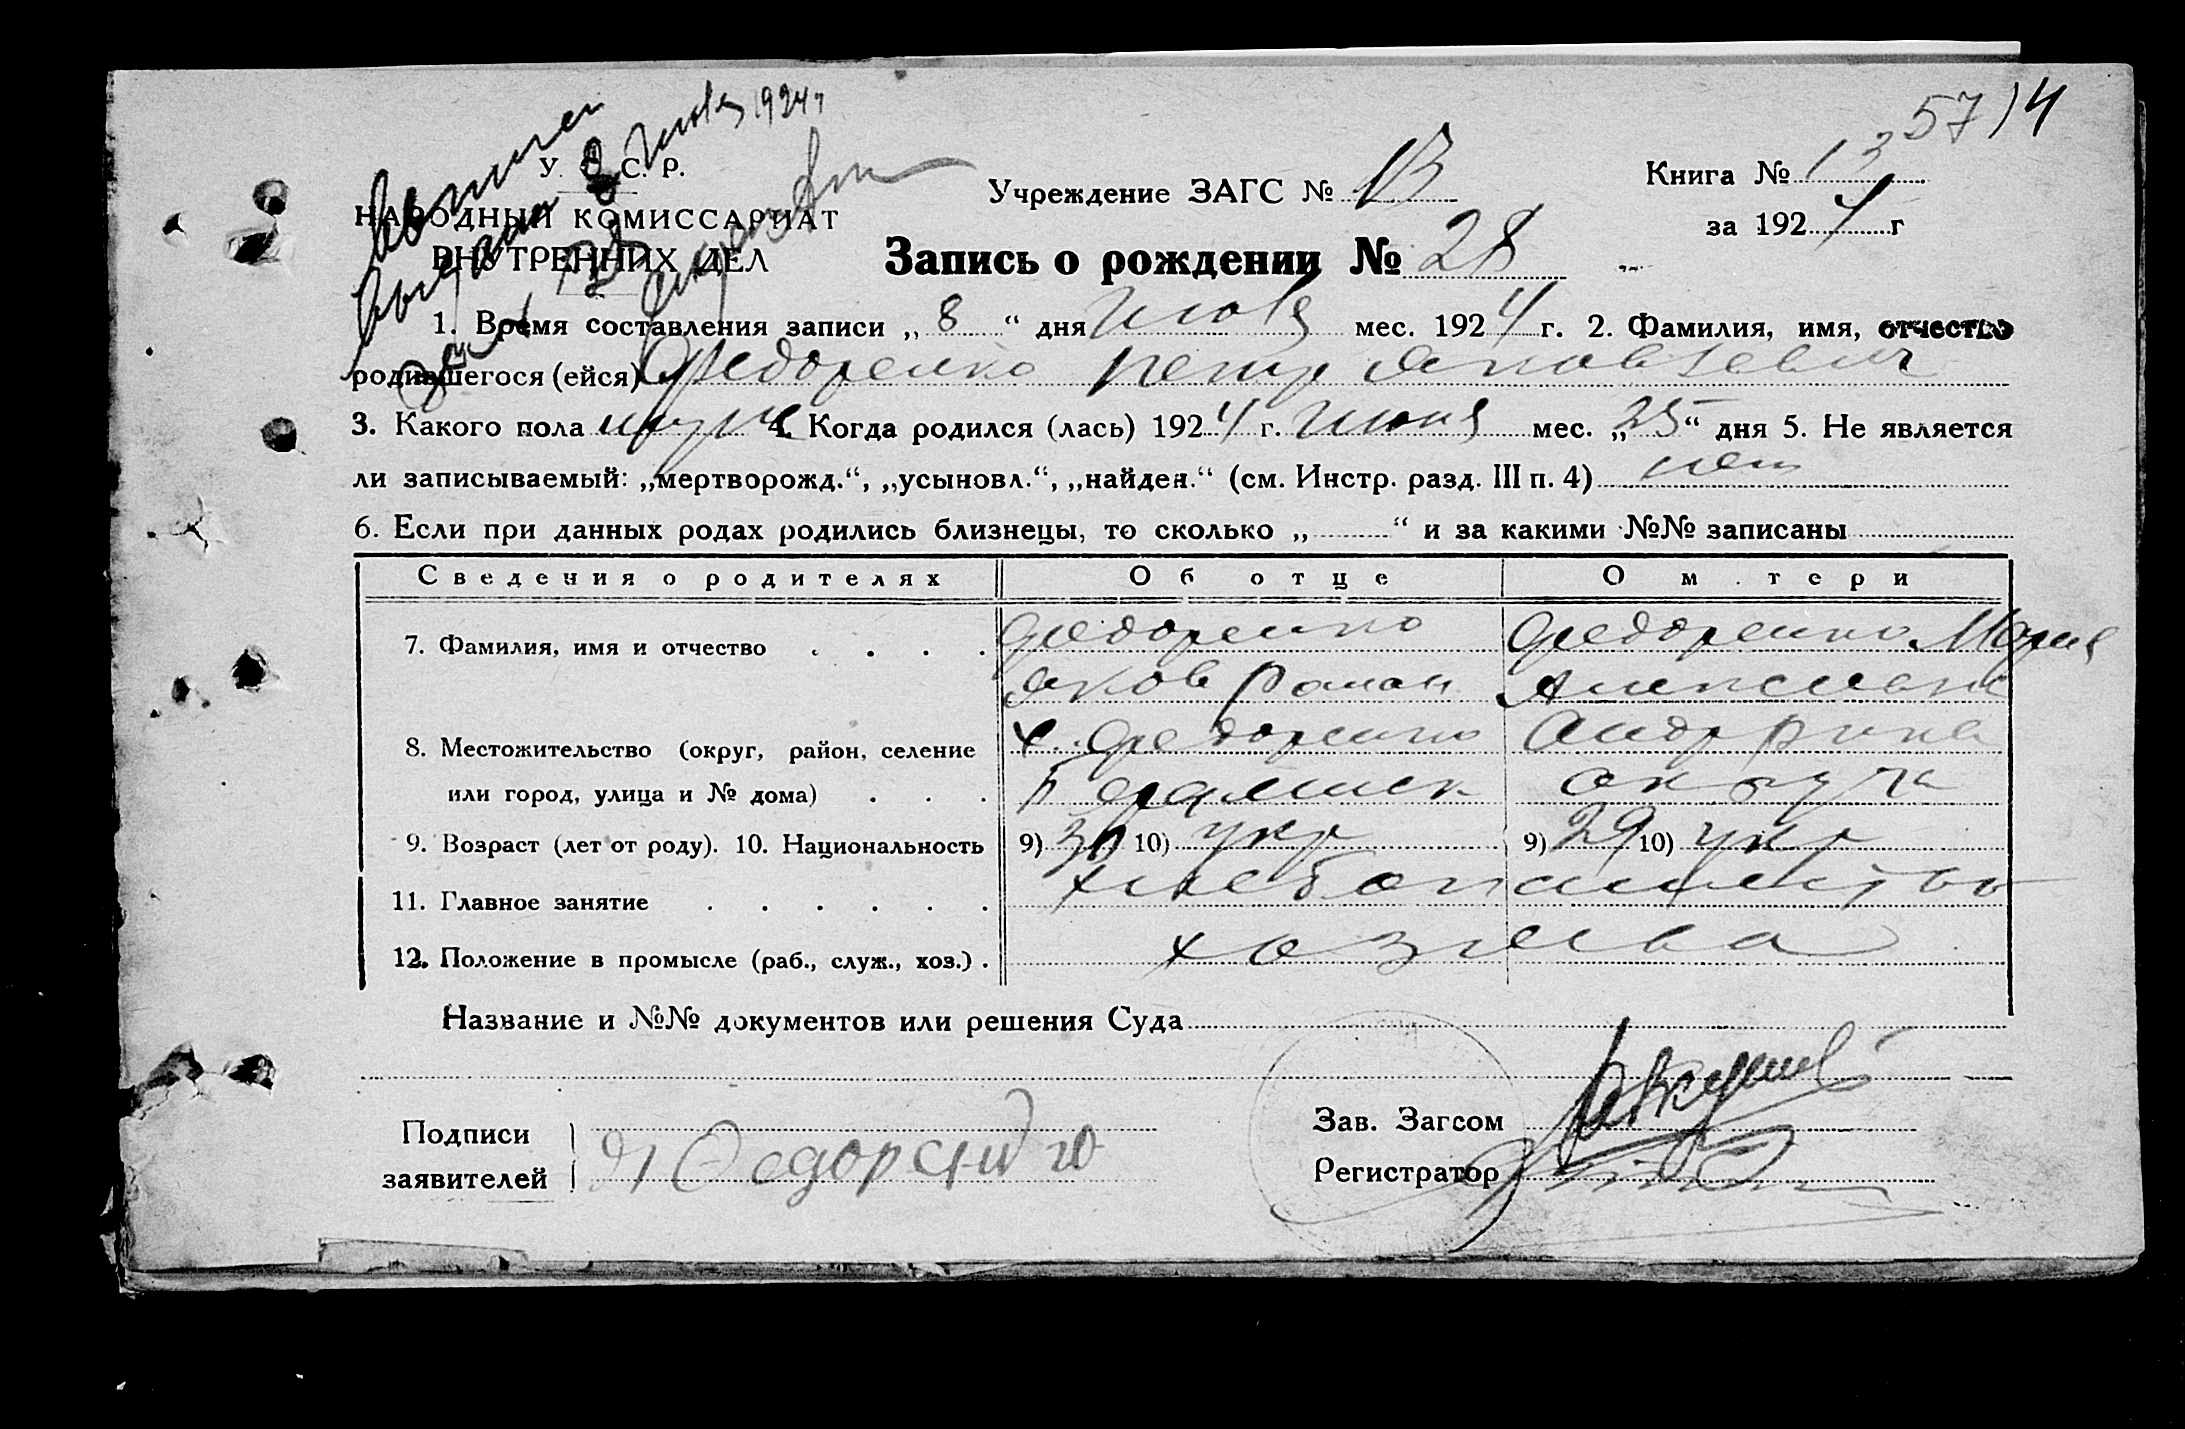 57 14
выписи
выдана 8 июля 1924 г
за № 28
У. С. С. Р.
НАРОДНЫЙ КОМИССАРИАТ
ВНУТРЕННИХ ДЕЛ
Учреждение ЗАГС № 13
Книга № 13
за 1924 г
Запись о рождении № 28
1. Время составления записи „ 8 “ дня июля мес. 1924 г. 2. Фамилия, имя, отчество
родившегося (ейся) Федоренко Петр Яковлевич
3. Какого пола муж 4. Когда родился (лась) 1924 г. июня мес. „ 25 “ дня 5. Не является
ли записываемый: „мертворожд.“, „усыновл.“, „найден.“ (см. Инстр. разд. III п. 4) нет
6. Если при данных родах родились близнецы, то сколько „ “ и за какими №№ записаны
Сведения о родителях Об отце О м.тери
7. Фамилия, имя и отчество Федоренко Федоренко Мария
Яков Роман Алексеевн
8. Местожительство (округ, район, селение х. Федоренко Андр р-на
или город, улица и № дома) Бердянск округа
9. Возраст (лет от роду). 10. Национальность 9) 30 10) укр 9) 29 10) укр
11. Главное занятие хлебопашество
12. Положение в промысле (раб., служ., хоз.) хозяева
Название и №№ документов или решения Суда
Подписи
заявителей Я Федоренко
Зав. Загсом
Регистратор